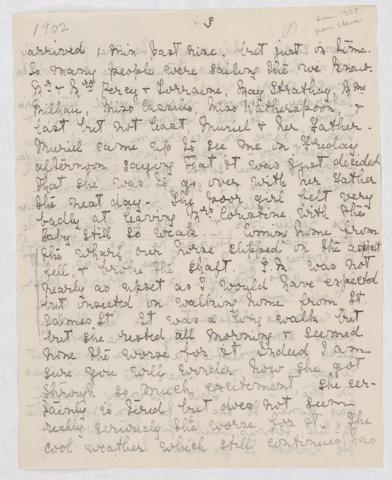 1902
3
(1)
arrived, min past nine, but just in time.
So many people were sailing the we knew.
Mr & Mrs Percy & Lorraine, May Strathay, Mme
Millian, Miss Cassils, Miss Witherspoon &
last but not least Muriel & her Father.
Muriel came up to see me on Friday
afternoon saying that it was just decided
that she was to go over with her Father
the next day. The poor girl felt very
badly at leaving Mrs Christine with the
baby still so weak. Coming home from
the wharf our horse slipped on the asphalt
fell, & broke the shaft. was not
nearly as upset as I would have expected
but insisted on walking home from St
James St. It was a long walk but
but she rested all morning & seemed
none the worse for it. Indeed I am
sure you will wonder how she got
through so much excitement. She cer-
tainly is tired but does not seem
really seriously the worse for it. The
cool weather which still continues has